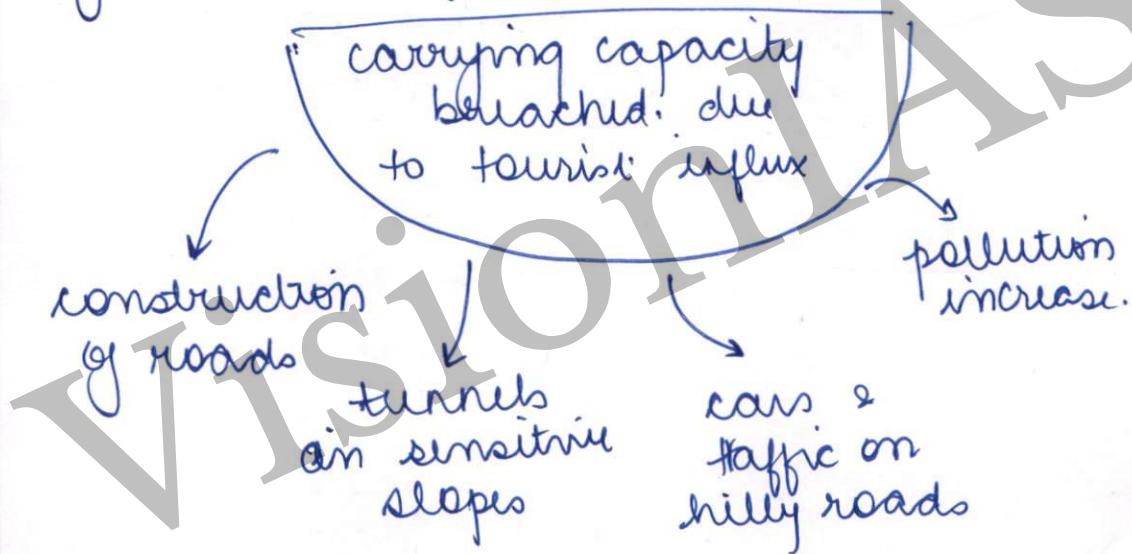 carrying capacity
breached. due
to tourist influx
construction
of roads
tunnels
in sensitive
slopes
cars &
traffic on
hilly roads
pollution
increase.
VisionIAS